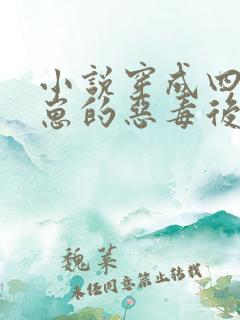 小說穿成四
崽的惡毒後
魏萊
未任同意禁止转载